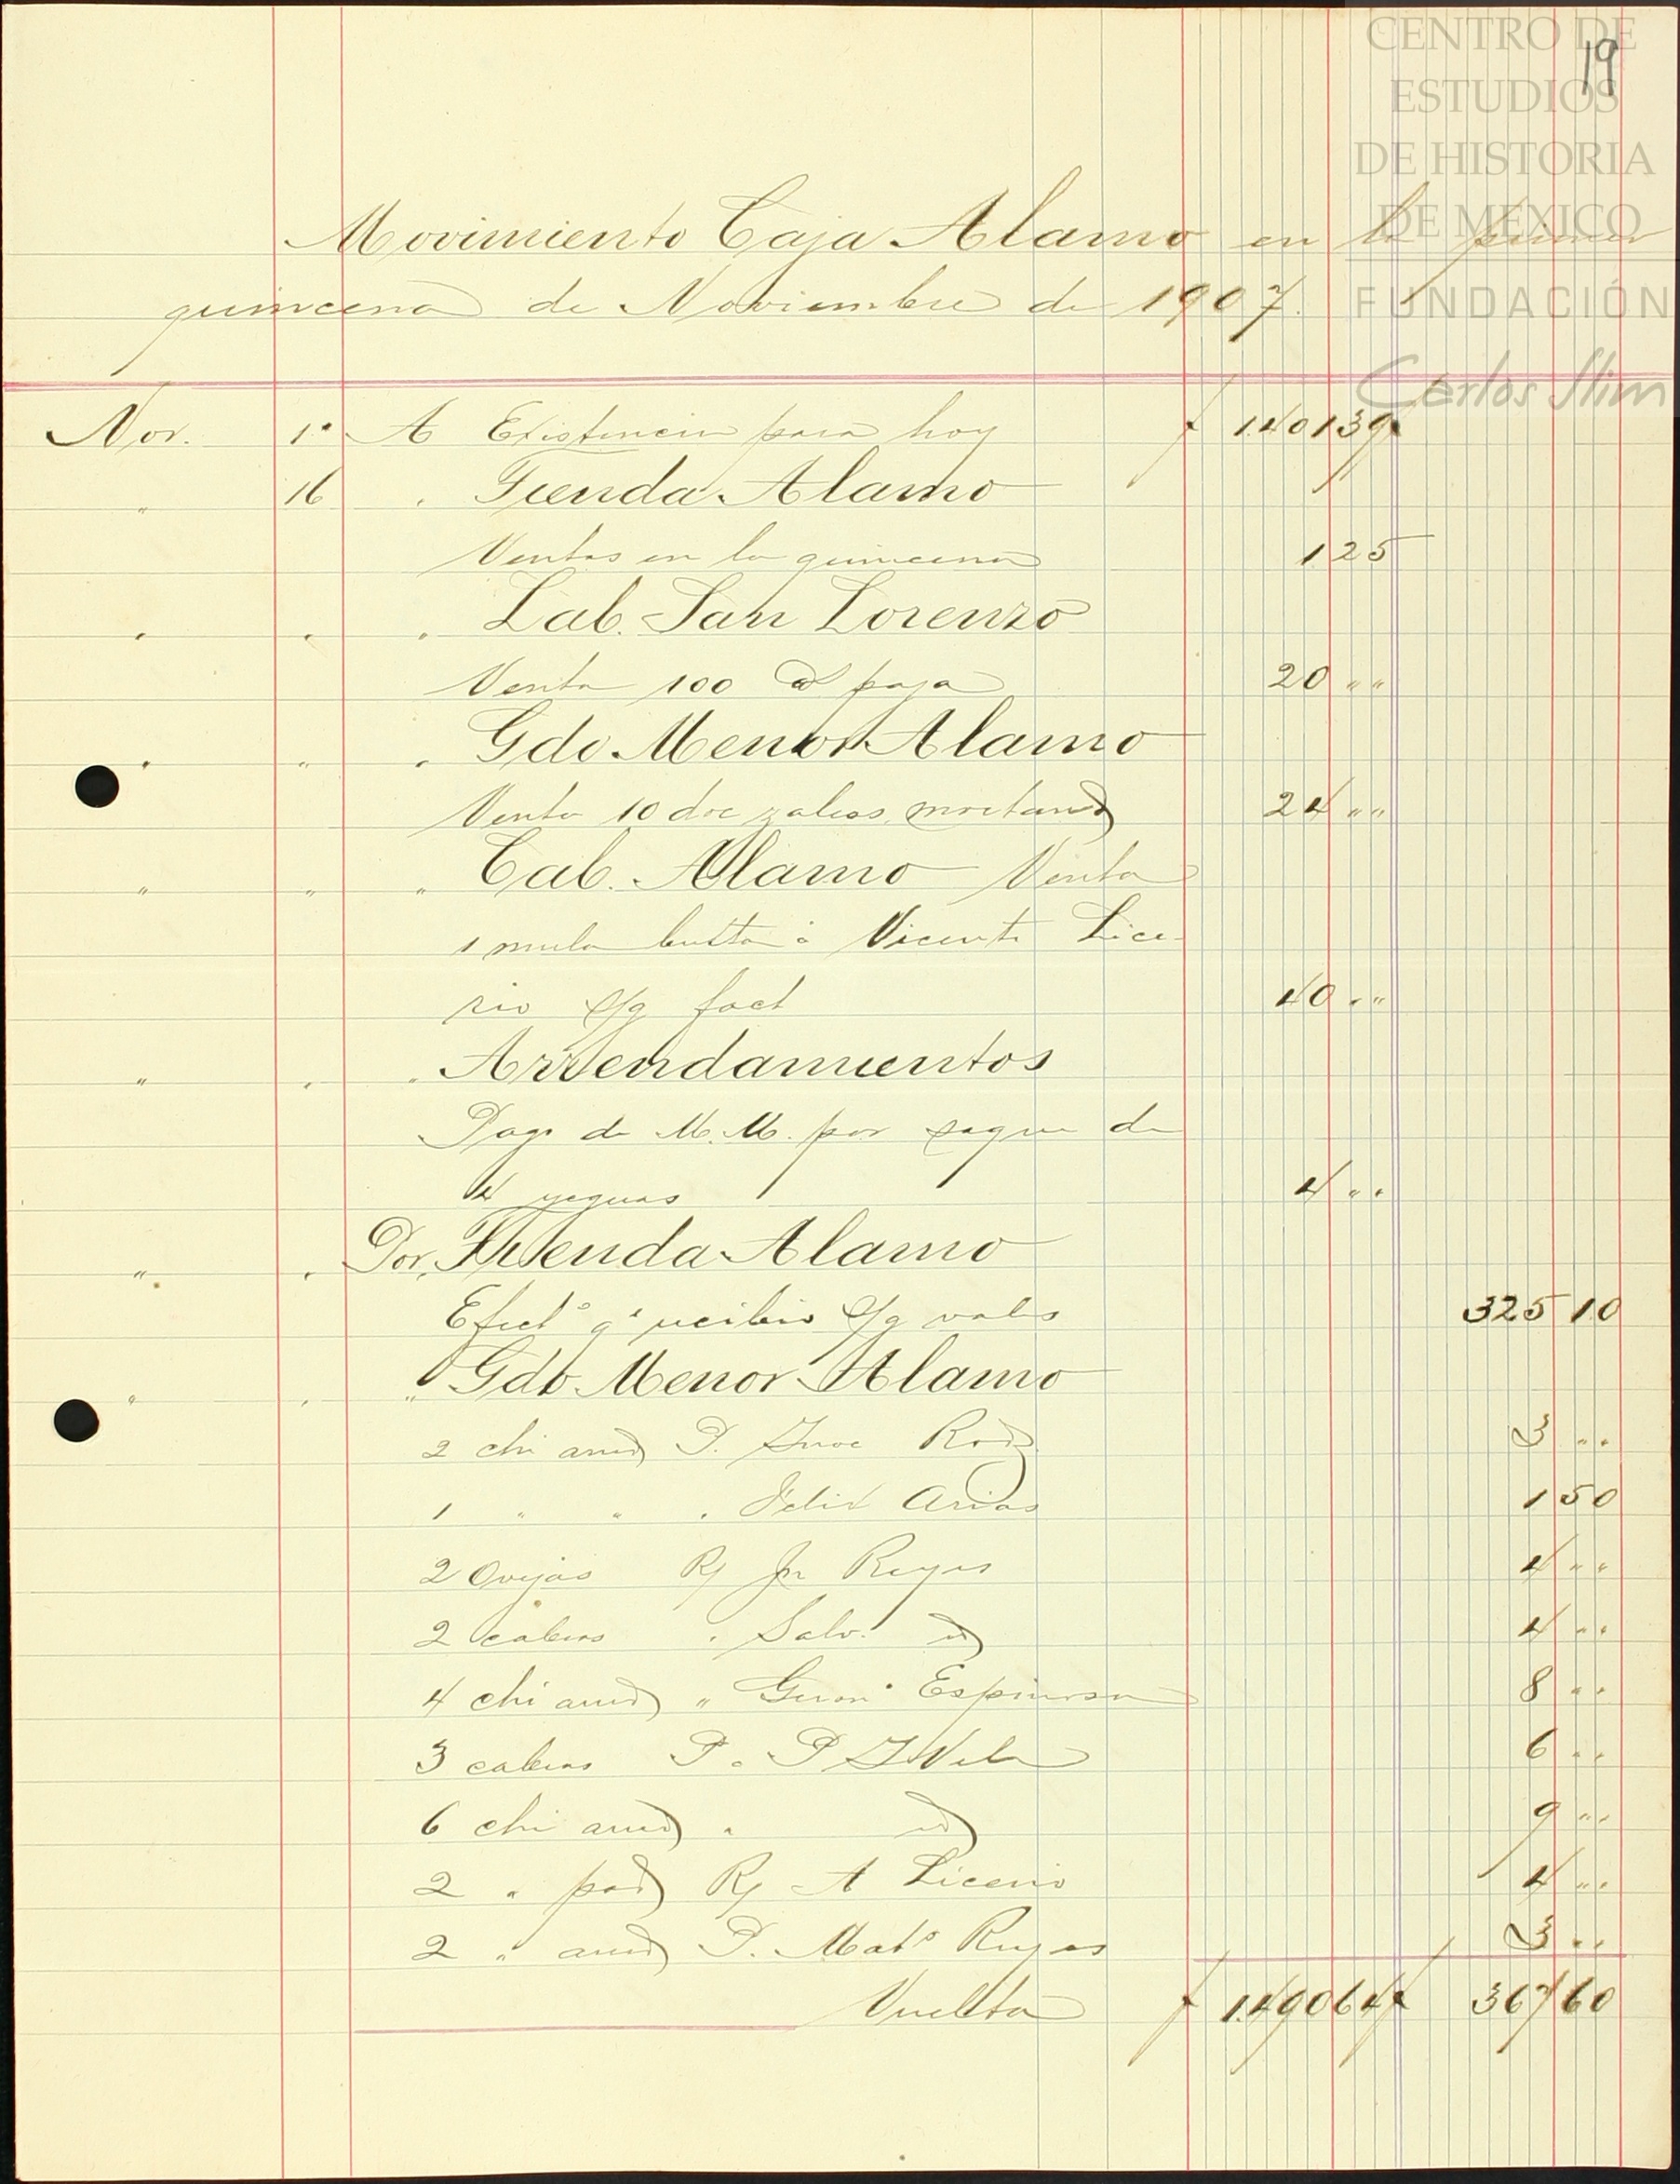 CENTRO DE
ESTUDIOS
DE HISTORIA
DE MEXICO
FUNDACIÓN
Carlos Slim
19
Movimiento Caja Alamo en la primer
quincena de Noviembre de 1907.
Nov. 1º A Existencia para hoy $ 1.401 39
" 16 " Tienda Alamo
Ventas en la quincena 1 25
" " " Lab. San Lorenzo
Venta 100 @ paja 20 " "
" " " Gdo Menor Alamo
Venta 10 doc zaleas mortand 24 " "
" " " Cab. Alamo Venta
1 mula bruta á Vicente Lice
rio s/g fact 40 " "
" " " Arrendamientos
Pago de M. M. por saque de
4 yeguas 4 " "
" " Por Tienda Alamo
Efectº qº recibió s/g vales 325 10
" " " Gdo Menor Alamo
2 chi anid P. Rodz 3 " "
1 " " " Felix Arias 1 50
2 Ovejas R/ Jn Reyes 4 " "
2 cabras " Salv. id 4 " "
4 chi anid " Geronº Espinosa 8 " "
3 cabras P. P Vela 6 " "
6 chi anid " id 9 " "
2 " pad R/ A Licerio 4 " "
2 " anid P. Matº Reyes 3 " "
Vuelta $ 1.490 64 $ 367 60